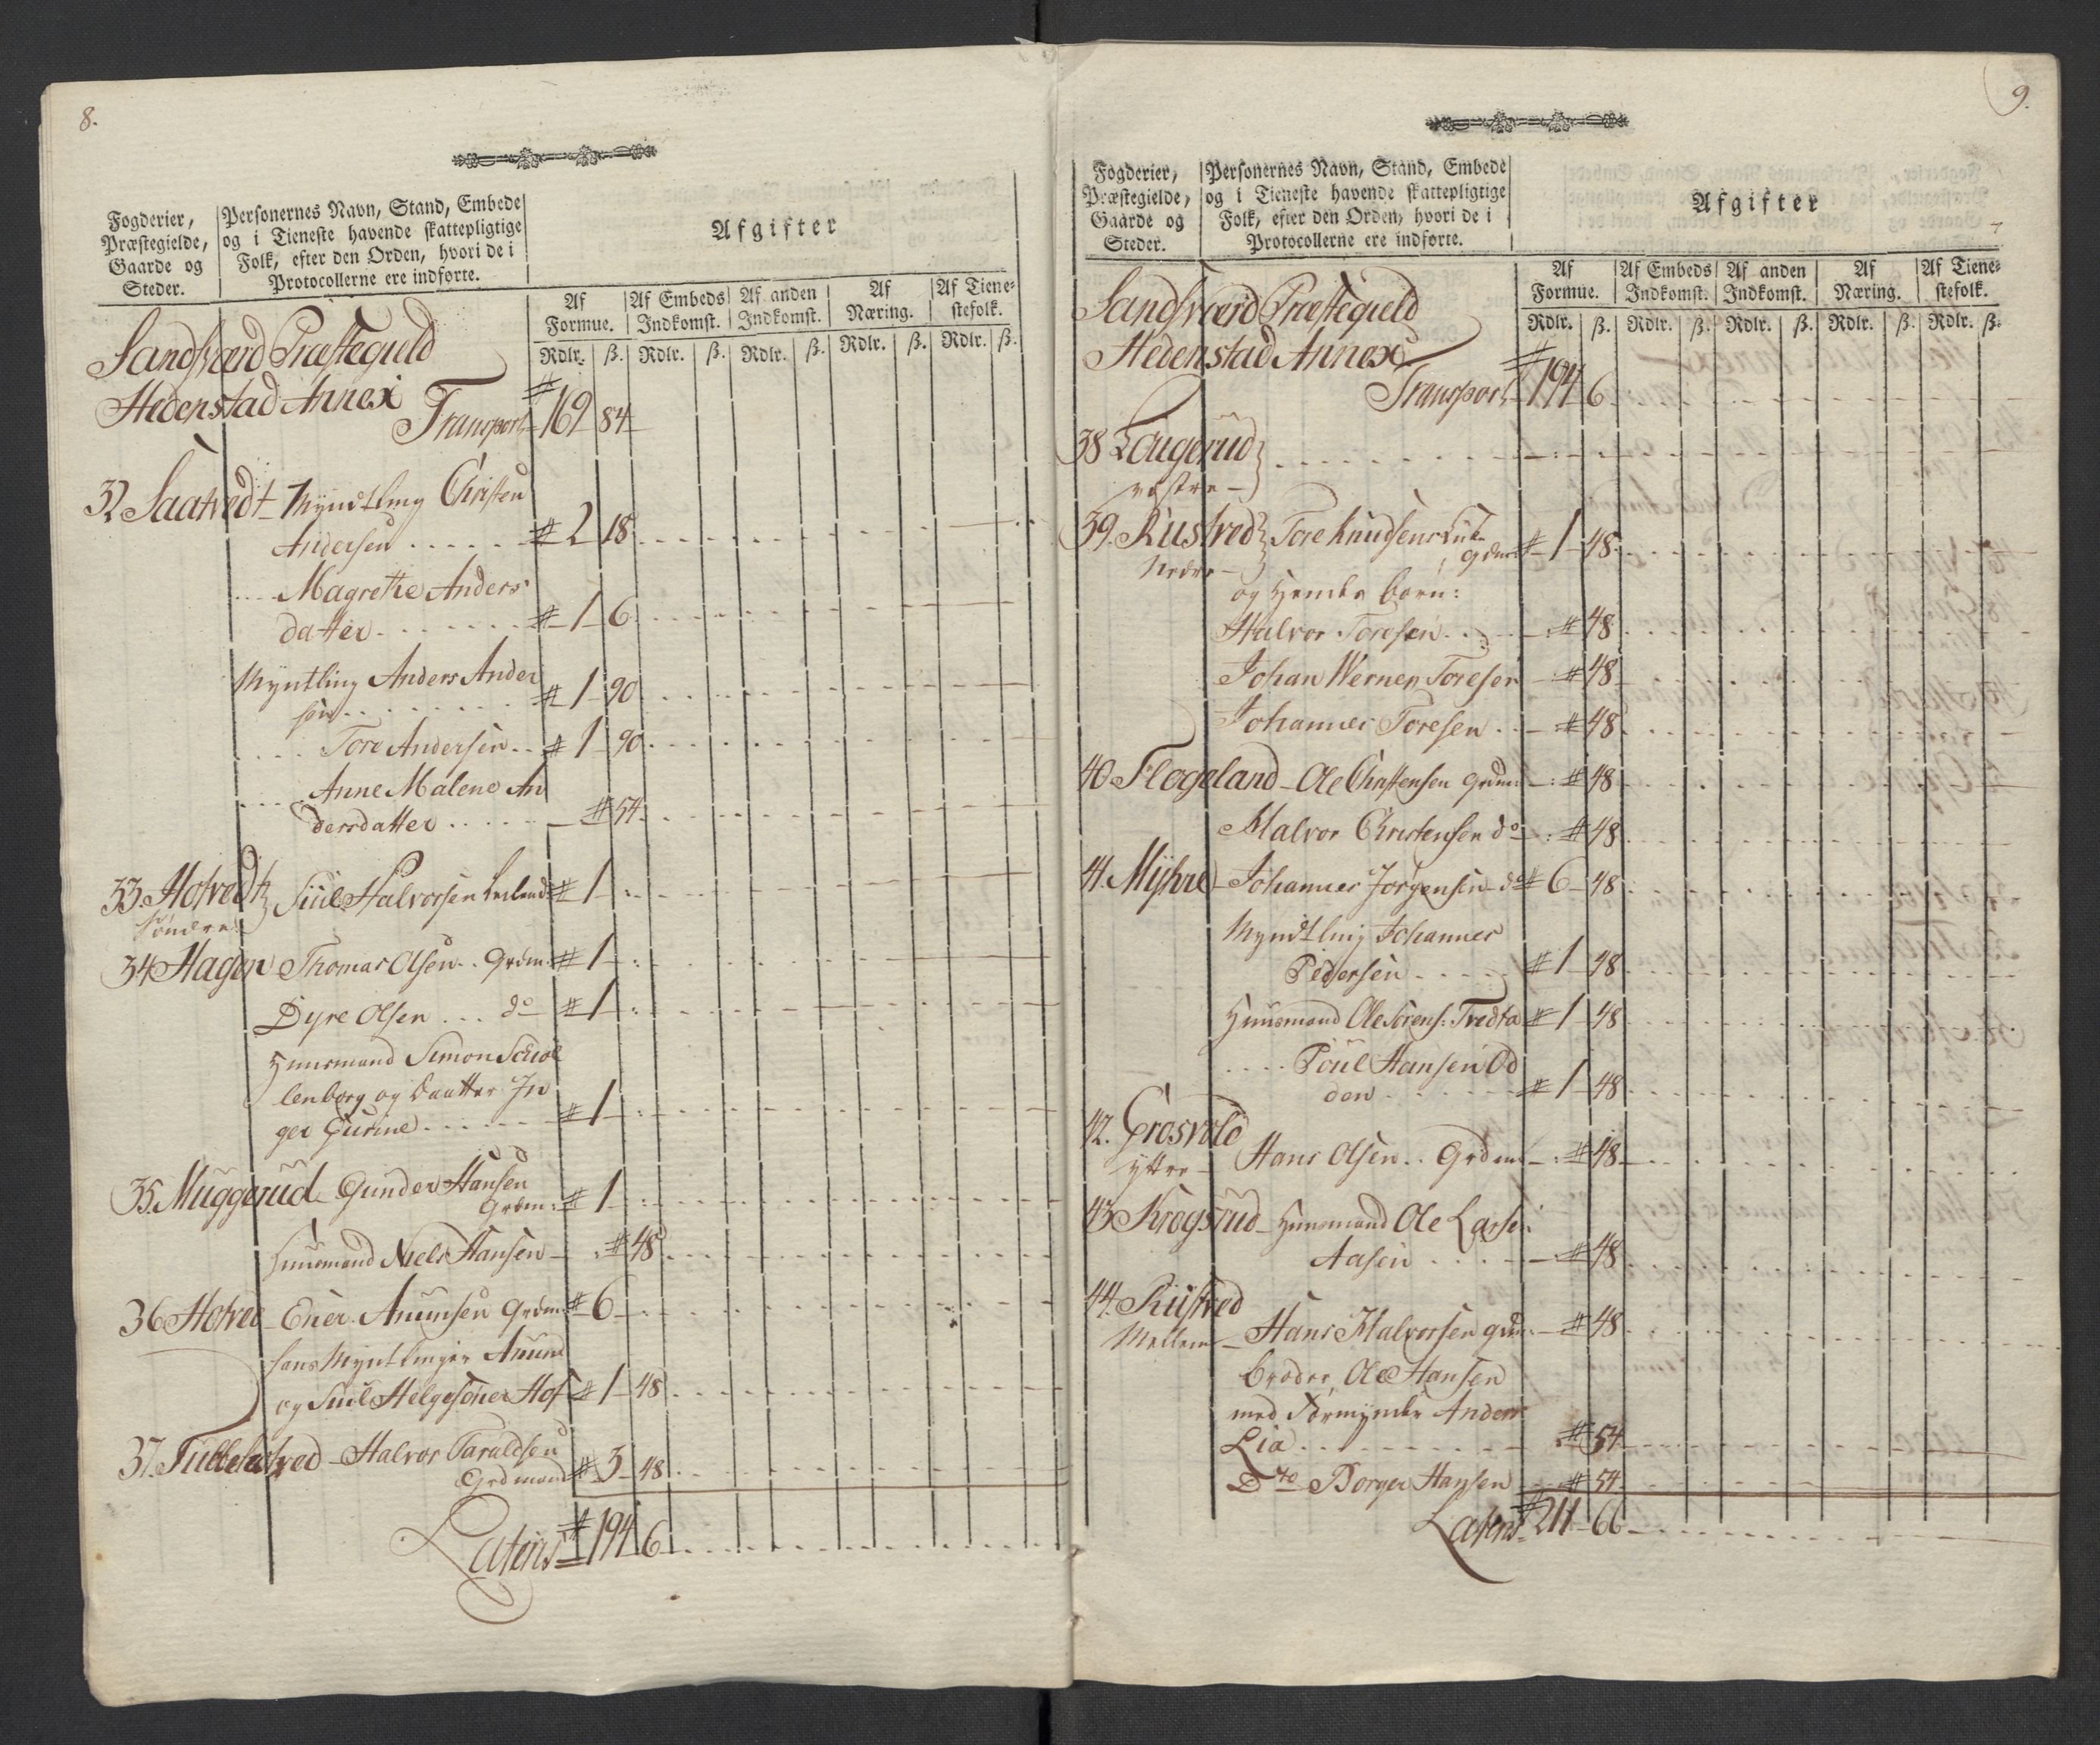 8.
Fogderier,
Præstegielde,
Gaarde og
Steder.
Personernes Navn, Stand, Embede
og i Tieneste havende skattepligtige
Folk, efter den Orden, hvori de i
Protocollerne ere indførte.
Afgifter
Af
Formue.
Af Embeds
Indkomst.
Af anden
Indkomst.
Af
Næring.
Af Tiene-
stefolk.
Rdlr. ß. Rdlr. ß. Rdlr. ß. Rdlr. ß. Rdlr. ß.
Sandsværd Præstegield
Hedenstad Annex
Transport 169 84
32 Saatvedt Myndtling Christen
Andersen 2 18
Magrethe Anders
datter 1 6
Myntling Anders Ander
sen 1 90
Tore Andersen 1 90
Anne Malene An
dersdatter 54
33 Hofvedt Siul Halvorsen 1
Søndre
34 Hagen Thomas Olsen Grdm: 1
Dyre Olsen do 1
Huusmand Simon Schol
lenborg og Daatter In
ger Gurine 1
35 Muggerud Gunder Hansen
Grdm: 1
Huusmand Niels Hansen 48
36 Hofved Ener Anunsen Grdm: 6
hans Myntlinger Anund
og Siul Helgesøner Hof 1 48
37. Halvor Taraldsen
Grdmand 3 48
Lateris 194 6
9.
Fogderier,
Præstegielde,
Gaarde og
Steder.
Personernes Navn, Stand, Embede
og i Tieneste havende skattepligtige
Folk, efter den Orden, hvori de i
Protocollerne ere indførte.
Afgifter
Af
Formue.
Af Embeds
Indkomst.
Af anden
Indkomst.
Af
Næring.
Af Tiene-
stefolk.
Rdlr. ß. Rdlr. ß. Rdlr. ß. Rdlr. ß. Rdlr. ß.
Sandsværd Præstegield
Hedenstad Annex
Transport 194 6
38 Lougerud
vestre
39. Rustved Tore Knudsens 1 48
Nedre
og Hendes Børn:
Halvor Toresen 48
Johan Werner Toresen 48
Johannes Toresen 48
40 Flogeland Ole Christensen Grdm 48
Halvor Christensen do 48
41. Myhre Johannes Jørgensen do 6 48
Myndtling Johannes
Pedersen 1 48
Huusmand Ole Sørens: Tredta 1 48
Poul Hansen Od
den 1 48
42. Grosvold
yttre Hans Olsen Grdm 48
43 Krogsrud Huusmand Ole Larsen
Aasen 48
44. Rustved
Mellem Hans Halvorsen Grdm 48
broder Ole Hansen
med Formynder Anders
Lia 54
Dto Borger Hansen 54
Lateris 211 66